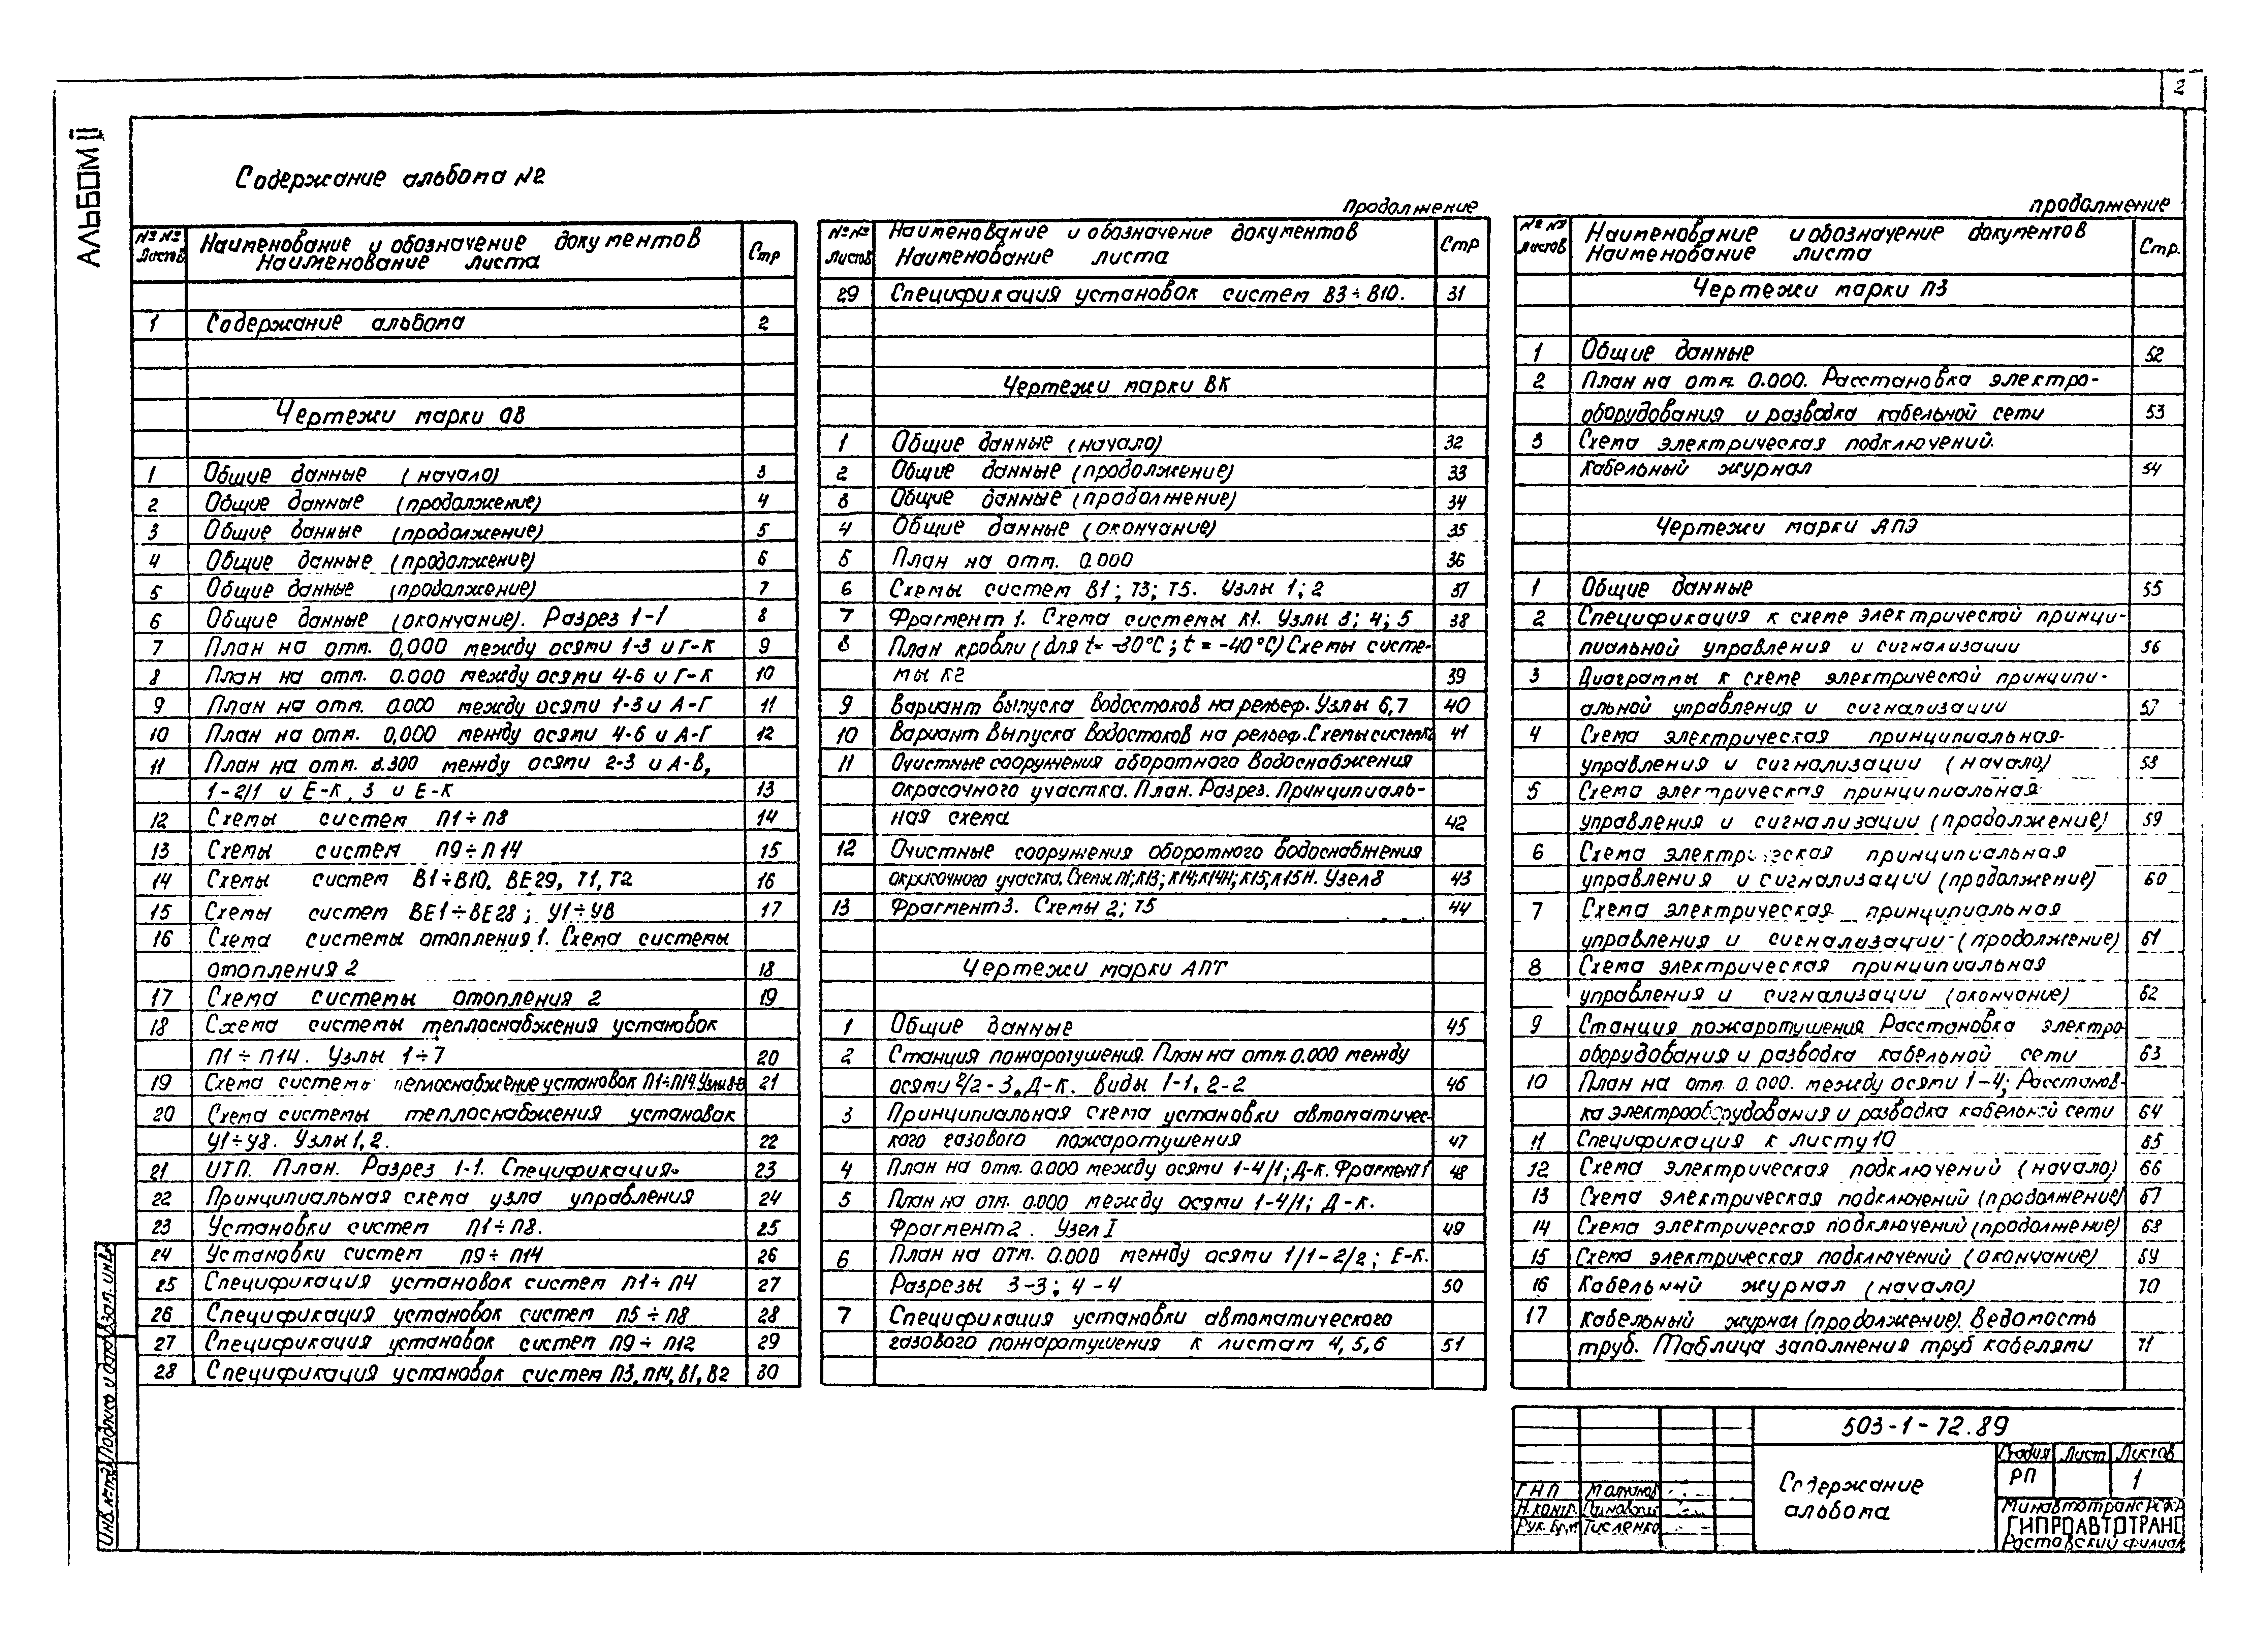 2
АЛЬБОМ II
Содержание альбома №2
№№ листов
Наименование и обозначение документов
Наименование листа
Стр
1 Содержание альбома 2
Чертежи марки ОВ
1 Общие данные (начало) 3
2 Общие данные (продолжение) 4
3 Общие данные (продолжение) 5
4 Общие данные (продолжение) 6
5 Общие данные (продолжение) 7
6 Общие данные (окончание). Разрез 1-1 8
7 План на отм. 0,000 между осями 1-3 и Г-К 9
8 План на отм. 0.000 между осями 4-6 и Г-К 10
9 План на отм. 0.000 между осями 1-3 и А-Г 11
10 План на отм. 0,000 между осями 4-6 и А-Г 12
11 План на отм. 3.300 между осями 2-3 и А-В,
1-2/1 и Е-К, 3 и Е-К 13
12 Схемы систем П1÷П8 14
13 Схемы систем П9÷П14 15
14 Схемы систем В1÷В10, ВЕ29, Т1, Т2 16
15 Схемы систем ВЕ1÷ВЕ28; У1÷У8 17
16 Схема системы отопления 1. Схема системы
отопления 2 18
17 Схема системы отопления 2 19
18 Схема системы теплоснабжения установок
П1÷П14. Узлы 1÷7 20
19 Схема системы теплоснабжение установок П1÷П14. Узлы 21
20 Схема системы теплоснабжения установок
У1÷У8. Узлы 1, 2. 22
21 ИТП. План. Разрез 1-1. Спецификация. 23
22 Принципиальная схема узла управления 24
23 Установки систем П1÷П8. 25
24 Установки систем П9÷П14 26
25 Спецификация установок систем П1÷П4 27
26 Спецификация установок систем П5÷П8 28
27 Спецификация установок систем П9÷П12 29
28 Спецификация установок систем П3, П14, В1, В2 30
продолжение
№№ листов
Наименование и обозначение документов
Наименование листа
Стр
29 Спецификация установок систем В3÷В10. 31
Чертежи марки ВК
1 Общие данные (начало) 32
2 Общие данные (продолжение) 33
3 Общие данные (продолжение) 34
4 Общие данные (окончание) 35
5 План на отм. 0.000 36
6 Схемы систем В1; Т3; Т5. Узлы 1; 2 37
7 Фрагмент 1. Схема системы К1. Узлы 3; 4; 5 38
8 План кровли (для t= -30°С; t = -40°С) Схемы систе-
мы К2 39
9 Вариант выпуска водостоков на рельеф. Узлы 6,7 40
10 Вариант выпуска водостоков на рельеф. Схемы системы 41
11 Очистные сооружения оборотного водоснабжения
окрасочного участка. План. Разрез. Принципиаль-
ная схема 42
12 Очистные сооружения оборотного водоснабжения
окрасочного участка. Схемы П1; К13; К14; К14Н; К15; К15Н. Узел 8 43
13 Фрагмент 3. Схемы 2; Т5 44
Чертежи марки АПТ
1 Общие данные 45
2 Станция пожаротушения. План на отм. 0.000 между
осями 2/2-3, Д-К. Виды 1-1, 2-2 46
3 Принципиальная схема установки автоматичес-
кого газового пожаротушения 47
4 План на отм. 0.000 между осями 1-4/1; Д-К. Фрагмент 1 48
5 План на отм. 0.000 между осями 1-4/1; Д-К.
Фрагмент 2. Узел I 49
6 План на отм. 0.000 между осями 1/1-2/2; Е-К.
Разрезы 3-3; 4-4 50
7 Спецификация установки автоматического
газового пожаротушения к листам 4, 5, 6 51
продолжение
№№ листов
Наименование и обозначение документов
Наименование листа
Стр.
Чертежи марки ПЗ
1 Общие данные 52
2 План на отм. 0.000. Расстановка электро-
оборудования и разводка кабельной сети 53
3 Схема электрическая подключений.
Кабельный журнал 54
Чертежи марки АПЭ
1 Общие данные 55
2 Спецификация к схеме электрической принци-
пиальной управления и сигнализации 56
3 Диаграммы к схеме электрической принципи-
альной управления и сигнализации 57
4 Схема электрическая принципиальная
управления и сигнализации (начало) 58
5 Схема электрическая принципиальная
управления и сигнализации (продолжение) 59
6 Схема электрическая принципиальная
управления и сигнализации (продолжение) 60
7 Схема электрическая принципиальная
управления и сигнализации (продолжение) 61
8 Схема электрическая принципиальная
управления и сигнализации (окончание) 62
9 Станция пожаротушения Расстановка электро-
оборудования и разводка кабельной сети 63
10 План на отм. 0.000. между осями 1-4; Расстанов-
ка электрооборудования и разводка кабельной сети 64
11 Спецификация к листу 10 65
12 Схема электрическая подключений (начало) 66
13 Схема электрическая подключений (продолжение) 67
14 Схема электрическая подключений (продолжение) 68
15 Схема электрическая подключений (окончание) 69
16 Кабельный журнал (начало) 70
17 Кабельный журнал (продолжение). Ведомость
труб. Таблица заполнения труб кабелями 71
503-1-72.89
Содержание
альбома
Стадия Лист Листов
РП 1
Минавтотранс РСФСР
ГИПРОАВТОТРАНС
Ростовский филиал
ГИП
Н. контр.
Рук. бриг. Тисленко
Инв. № подл. Подпись и дата Взам. инв. №